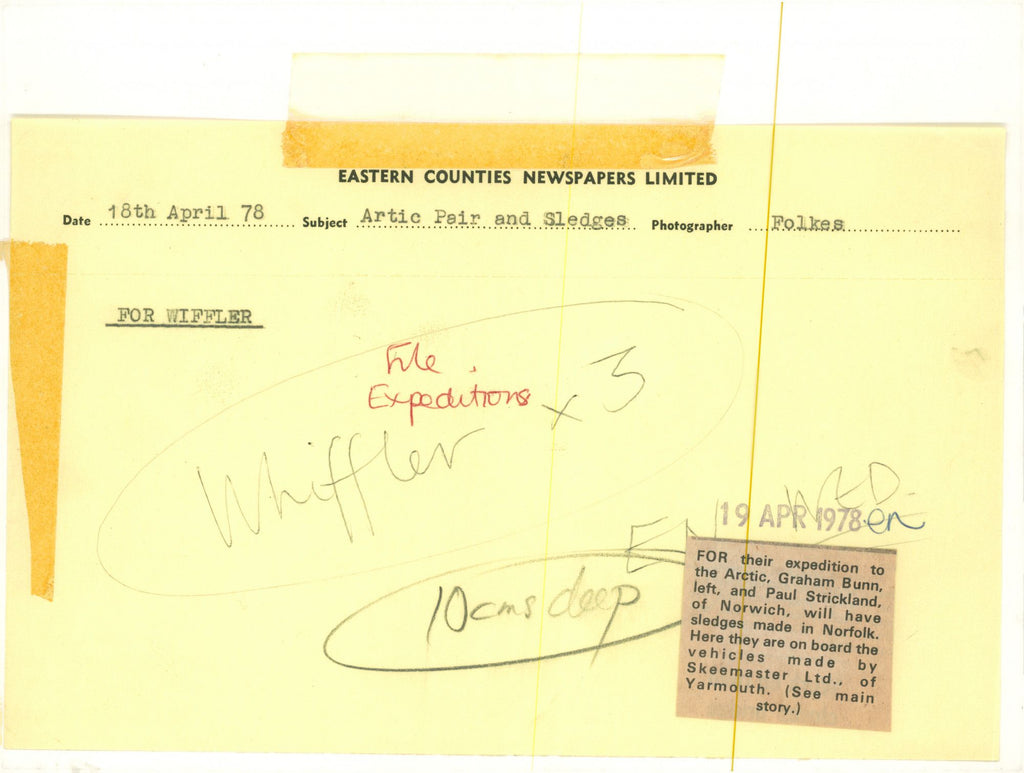 EASTERN COUNTIES NEWSPAPERS LIMITED
Date 18th April 78 Subject Artic Pair and Sledges Photographer Folkes
FOR WIFFLER
File.
Expeditions
Whiffler x 3
WED.
EN 19 APR 1978 en
10cms deep
FOR their expedition to
the Arctic, Graham Bunn,
left, and Paul Strickland,
of Norwich, will have
sledges made in Norfolk.
Here they are on board the
vehicles made by
Skeemaster Ltd., of
Yarmouth. (See main
story.)